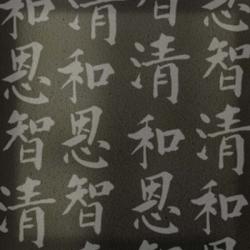 和 清 智 恩
恩 和 清 智
智 恩 和 清
清 智 恩 和